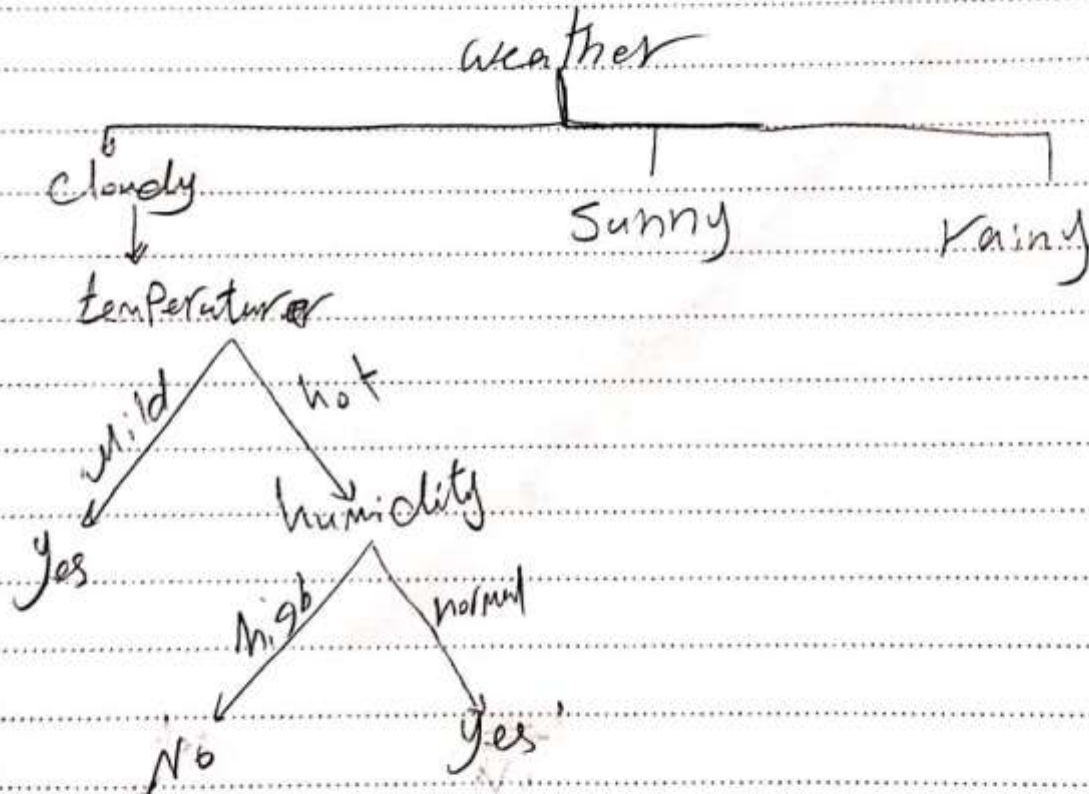 weather
cloudy
sunny
rainy
temperature
Mild
hot
Yes
humidity
high
normal
No
Yes